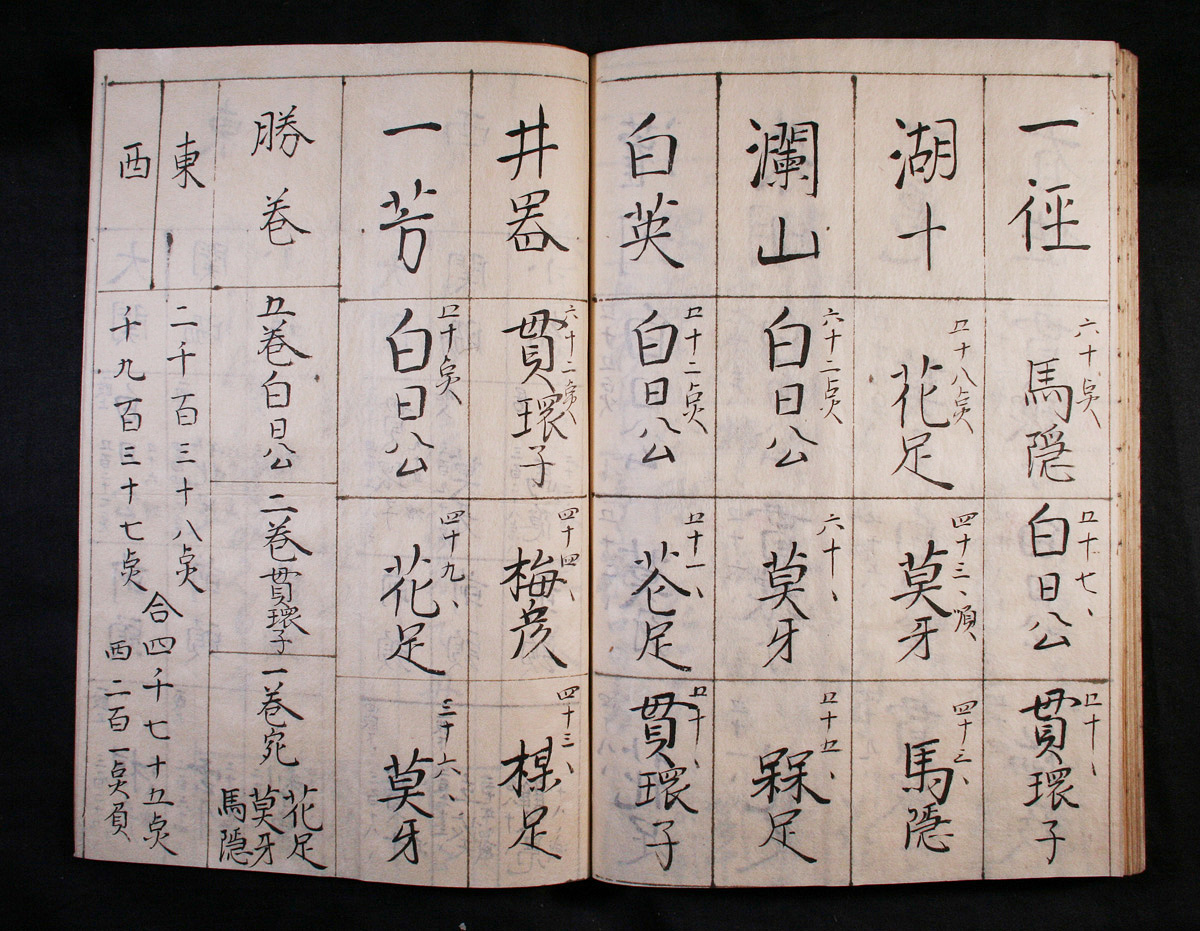 一徑
六十点
馬隠
五十七、
白日公
五十、
貫環子
湖十
五十八点
花足
四十三、順
莫牙
四十三、
馬隠
瀾山
六十二点
白日公
六十、
莫牙
五十五、
槑足
白英
五十二点
白日公
五十一、
花足
五十、
貫環子
井器
六十二点
貫環子
四十四、
梅彦
四十三、
楳足
一芳
五十点
白日公
四十九、
花足
三十六、
莫牙
勝巻
五巻白日公
二巻貫環子
一巻宛
花足
莫牙
馬隠
東
二千百三十八点
西
千九百三十七点
合四千七十五点
西二百一点負